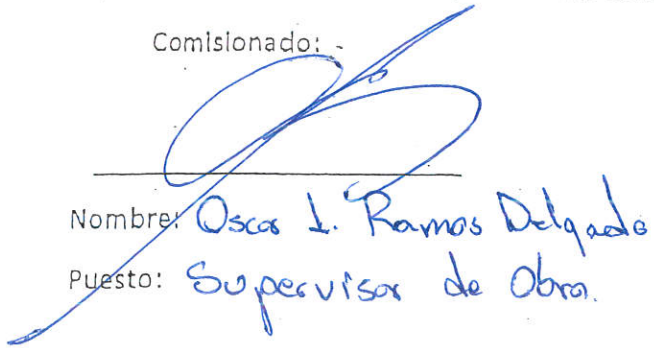 Comisionado:
Nombre: Oscar I. Ramos Delgado
Puesto: Supervisor de Obra.